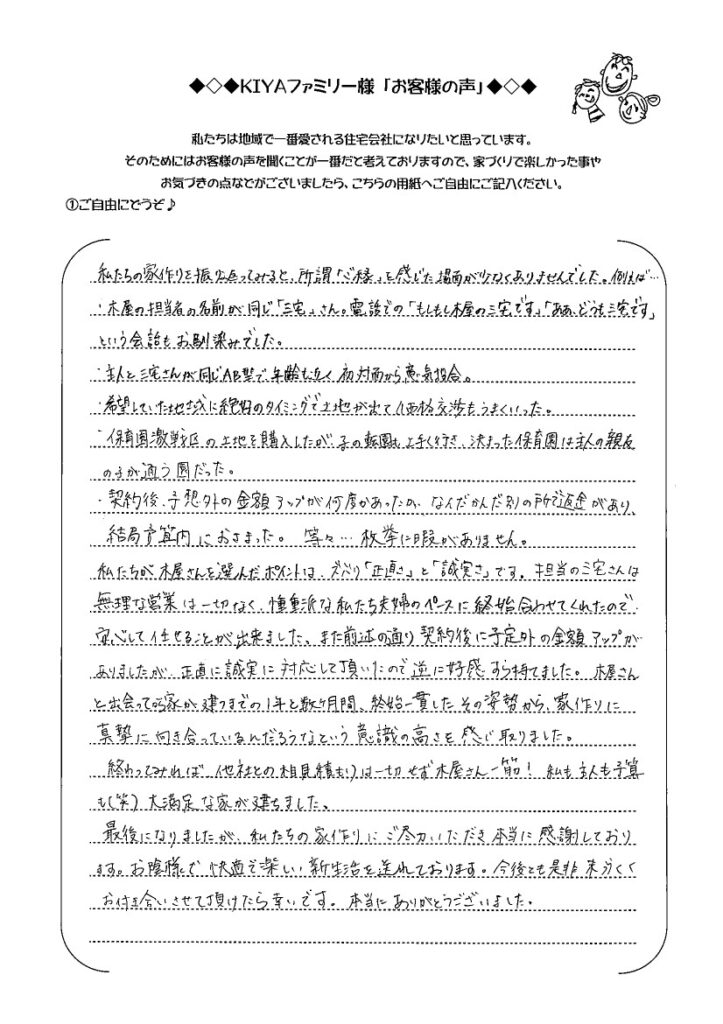 ◆◇◆KIYAファミリー様「お客様の声」◆◇◆
私たちは地域で一番愛される住宅会社になりたいと思っています。
そのためにはお客様の声を聞くことが一番だと考えておりますので、家づくりで楽しかった事や
お気づきの点などがございましたら、こちらの用紙へご自由にご記入ください。
①ご自由にどうぞ♪
私たちの家作りを振り返ってみると、所謂「ご縁」を感じた場面が少なくありませんでした。例えば…
・木屋の担当者の名前が同じ「三宅」さん。電話での「もしもし木屋の三宅です」「ああ、どうも三宅です」
という会話もお馴染みでした。
・主人と三宅さんが同じAB型で年齢も近く初対面から意気投合。
・希望していた地域に絶好のタイミングで土地が出て価格交渉もうまくいった。
・保育園激戦区の土地を購入したが、子の転園も上手く行き、決まった保育園は主人の親友
の子が通う園だった。
・契約後、予想外の金額アップが何度かあったが、なんだかんだ別の所で返金があり、
結局予算内におさまった。 等々… 枚挙に暇がありません。
私たちが木屋さんを選んだポイントは、ズバリ「正直さ」と「誠実さ」です。担当の三宅さんは
無理な営業は一切なく、慎重派な私たち夫婦のペースに終始合わせてくれたので
安心して任せることが出来ました。また前述の通り契約後に予定外の金額アップが
ありましたが、正直に誠実に対応して頂いたので逆に好感すら持てました。木屋さん
と出会って家が建つまでの1年と数ヶ月間、終始一貫したその姿勢から、家作りに
真摯に向き合っているんだろうなという意識の高さを感じ取りました。
終わってみれば、他社との相見積もりは一切せず木屋さん一筋！私も主人も予算
も(笑)大満足な家が建ちました。
最後になりましたが、私たちの家作りにご尽力いただき本当に感謝しており
ます。お陰様で快適で楽しい新生活を送れております。今後とも是非末永く
お付き合いさせて頂けたら幸いです。本当にありがとうございました。